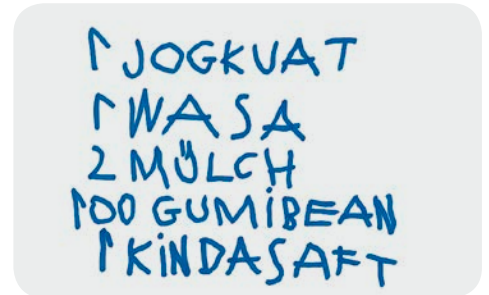 1 JOGKUAT
1 WASA
2 MÜLCH
100 GUMIBEAN
1 KINDASAFT